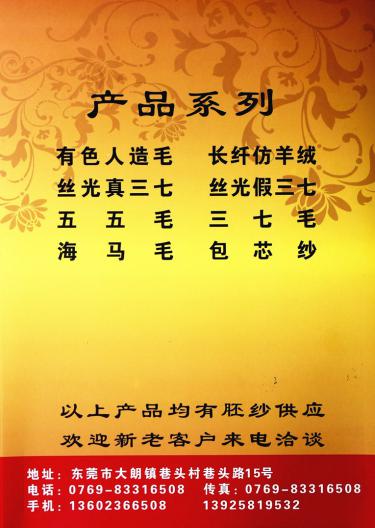 产品系列
有色人造毛 长纤仿羊绒
丝光真三七 丝光假三七
五五毛 三七毛
海马毛 包芯纱
以上产品均有胚纱供应
欢迎新老客户来电洽谈
地址：东莞市大朗镇巷头村巷头路15号
电话：0769-83316508 传真：0769-83316508
手机：13602366508 13925819532